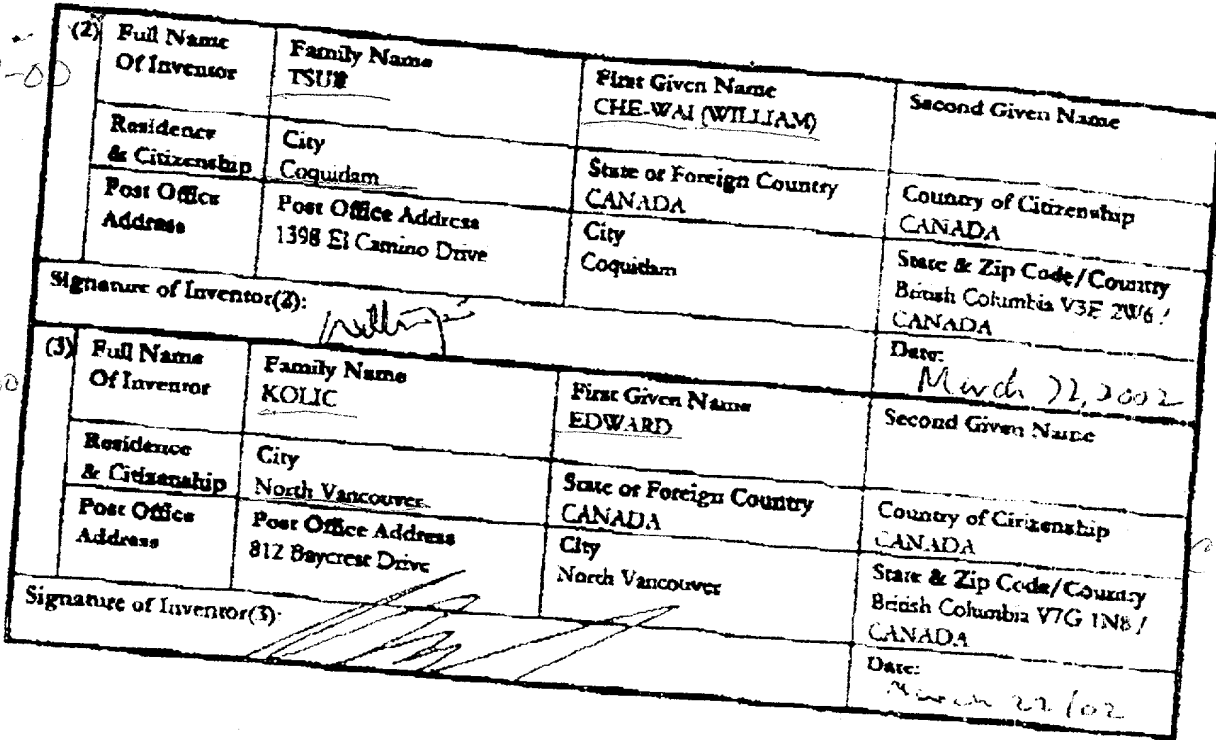 (2) Full Name Of Inventor
Family Name
First Given Name
CHE-WAI (WILLIAM)
Second Given Name
Residence & Citizenship
City
Coquidam
State or Foreign Country
CANADA
Country of Citizenship
CANADA
Post Office Address
Post Office Address
1398 El Camino Drive
City
Coquidam
State & Zip Code/Country
British Columbia V3E 2W6 /
CANADA
Signature of Inventor(2):
Date:
March 22, 2002
(3) Full Name Of Inventor
Family Name
KOLIC
First Given Name
EDWARD
Second Given Name
Residence & Citizenship
City
North Vancouver
State or Foreign Country
CANADA
Country of Citizenship
CANADA
Post Office Address
Post Office Address
812 Baycrest Drive
City
North Vancouver
State & Zip Code/Country
British Columbia V7G 1N8 /
CANADA
Signature of Inventor(3):
Date:
March 22/02